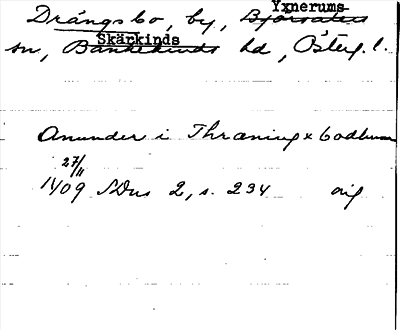 Yxnerums-
Drängsbo, by, Björsäters
Skärkinds
sn, Bankekinds hd, Österg. l.
Anunder i Thræningxbodhum
27/11
1409 SDns 2, s. 234 orig